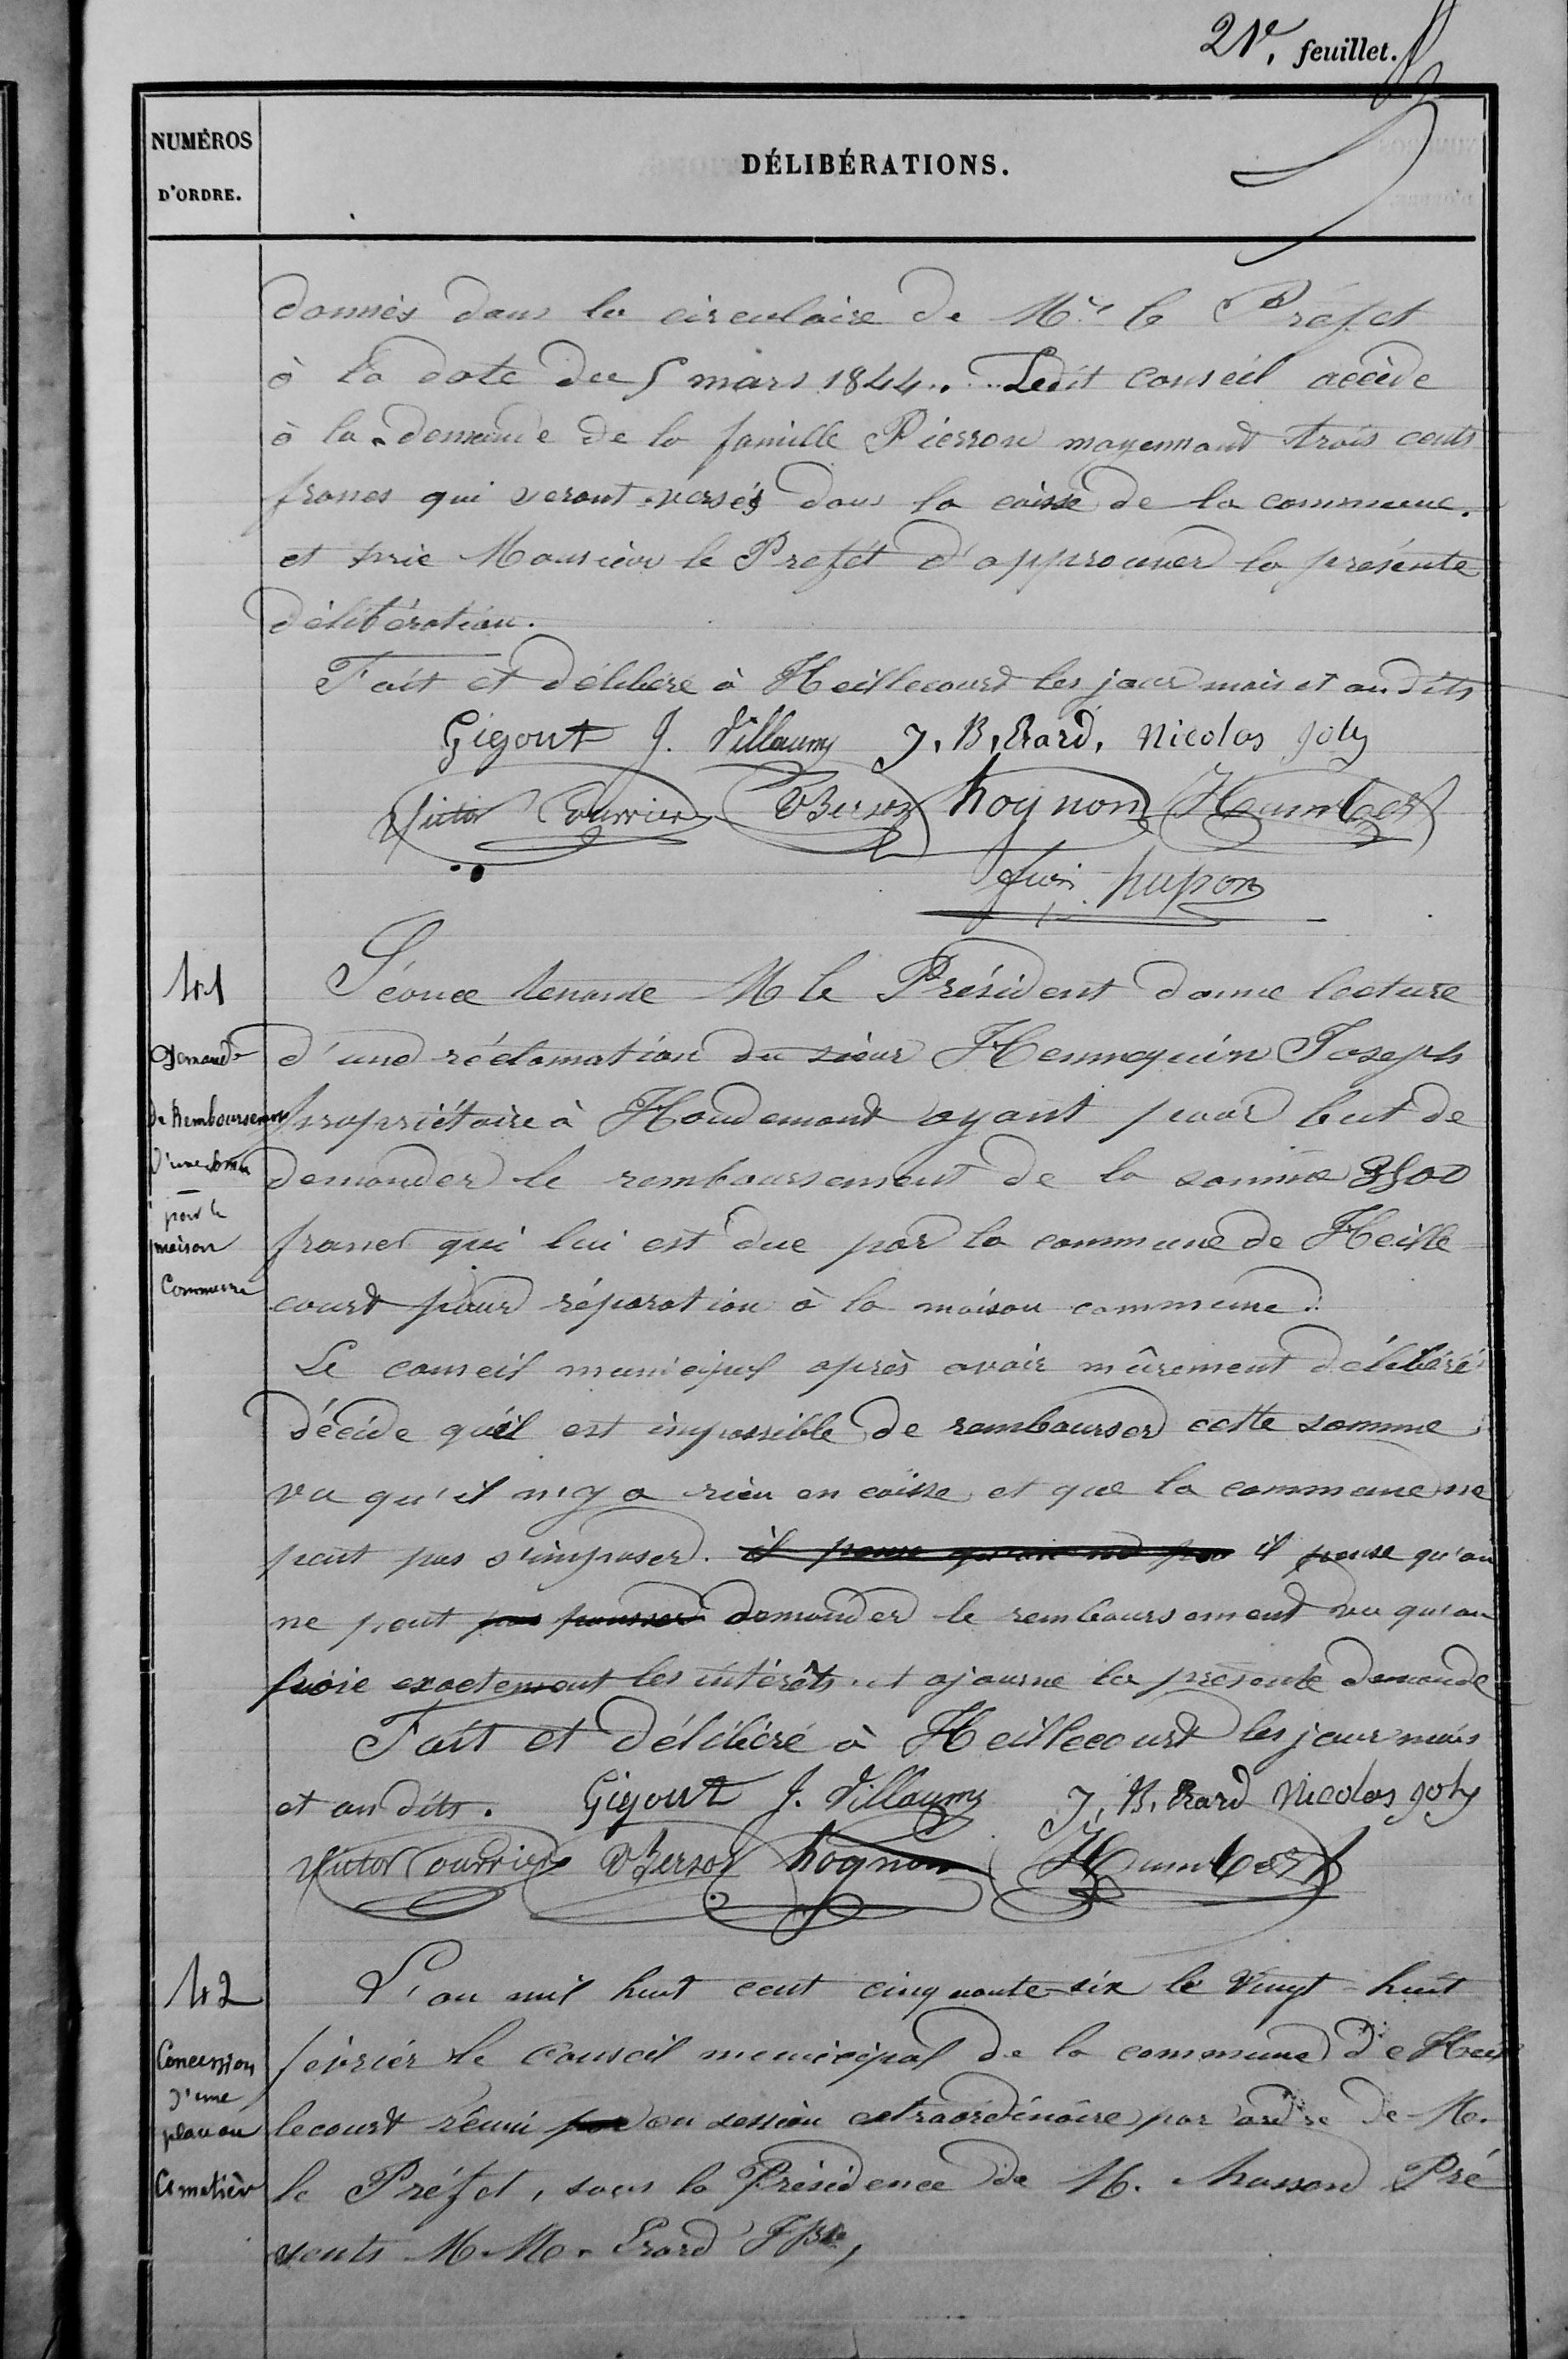 21e, feuillet.
NUMÉROS
D'ORDRE.
DÉLIBÉRATIONS.
donnés dans la circulaire de Mr le Préfet
à la date du 5 mars 1844.. Ledit conseil accède
à la demande de la famille Pierson moyennant trois cents
francs qui seront versés dans la caisse de la commune.
et prie Monsieur le Prefét d'approuver la présente
délibération.
Fait et délibéré à Heillecourt les jour mois et an dits
Gigout J. Villaumy J, B, Erard, Nicolas Joly
Victor Courrier Bersoz hognon Humbert
pupon
41
Séance tenante M le Président donne lecture
Demande
d'une réclamation du sieur Hennequin Joseph
de Remboursement
propriétaire à Houdemont ayant pour but de
d'une somme
demander le remboursement de la somme 3500
pour la
maison
francs qui lui est due par la commune de Heille
Commune
court pour réparation à la maison commune.
Le conseil municipal après avoir mûrement délibéré
décide qu'il est impossible de rembourser cette somme
vu qu'il n'y a rien en caisse et que la commune ne
peut pas s'imposer. il pense qu'on ne peu il pense qu'on
ne peut pas demander le remboursement vu qu'on
paie exactement les intérêts et ajourne la présente demande
Fait et délibéré à Heillecourt les jour mois
et an dits. Gigout J. Villaumy J, B, Erard Nicolas Joly
Victor Courrier Bersoz hognon Humbert
42
L'an mil huit cent cinquante-six le vingt-huit
Concession
février le Conseil municipal de la commune de Heil
d'une
place au
lecourt réuni par en session extraordinaire par ordre de M.
Cimetière
le Préfet, sous la Présidence de M. Masson Pré
sents M.M. Erard J Bte,